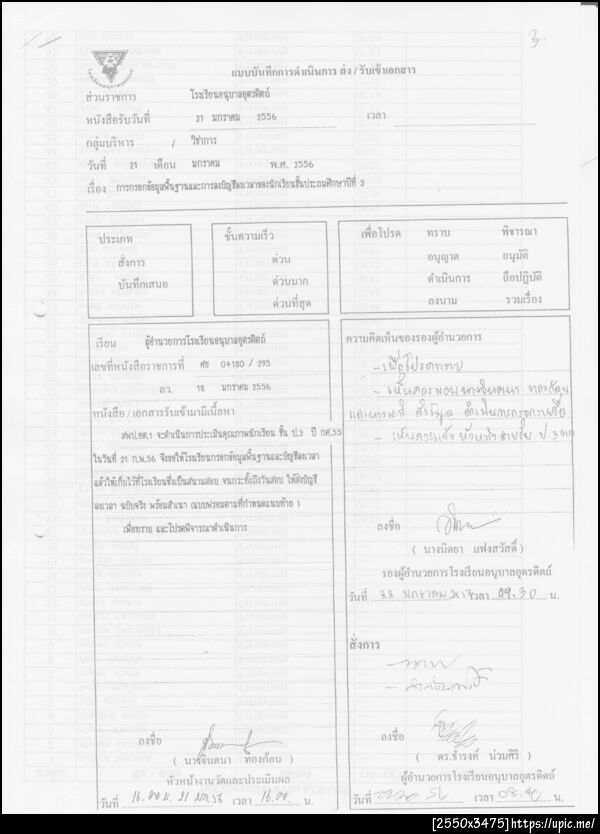 3.
แบบบันทึกการดำเนินการ ส่ง / รับเข้าเอกสาร
ส่วนราชการ โรงเรียนอนุบาลอุตรดิตถ์
หนังสือรับวันที่ 21 มกราคม 2556 เวลา
กลุ่มบริหาร / วิชาการ
วันที่ 21 เดือน มกราคม พ.ศ. 2556
เรื่อง การกรอกข้อมูลพื้นฐานและการลงบัญชีลงเวลาของนักเรียนชั้นประถมศึกษาปีที่ 3
ประเภท
สั่งการ
บันทึกเสนอ
ชั้นความเร็ว
ด่วน
ด่วนมาก
ด่วนที่สุด
เพื่อโปรด ทราบ พิจารณา
อนุญาต อนุมัติ
ดำเนินการ ถือปฏิบัติ
ลงนาม รวมเรื่อง
เรียน ผู้อำนวยการโรงเรียนอนุบาลอุตรดิตถ์
เลขที่หนังสือราชการที่ ศธ 04180 / 295
ลว. 18 มกราคม 2556
หนังสือ / เอกสารรับเข้ามามีเนื้อหา
สพป.อต.1 จะดำเนินการประเมินคุณภาพนักเรียน ชั้น ป.3 ปี กศ.55
ในวันที่ 21 ก.พ.56 จึงขอให้โรงเรียนกรอกข้อมูลพื้นฐานและบัญชีลงเวลา
แล้วให้เก็บไว้ที่โรงเรียนซึ่งเป็นสนามสอบ จนกระทั่งถึงวันสอบ ให้ส่งบัญชี
ลงเวลา ฉบับจริง พร้อมสำเนา (แบบฟอร์มตามที่กำหนดแนบท้าย )
เพื่อทราบ และโปรดพิจารณาดำเนินการ
ลงชื่อ
( นางจินตนา ทองก้อน )
หัวหน้างานวัดและประเมินผล
วันที่ 21 เวลา 16.00 น.
ความคิดเห็นของรองผู้อำนวยการ
- เพื่อโปรดทราบ
- เห็นควรมอบนางจินตนา
- เห็นควรแจ้งหัวหน้าสายชั้น ป.3
ลงชื่อ
( นางนิตยา แฟงสวัสดิ์ )
รองผู้อำนวยการโรงเรียนอนุบาลอุตรดิตถ์
วันที่ เวลา 09.30 น.
สั่งการ
- ทราบ
ลงชื่อ
( ดร.ธำรงค์ น่วมศิริ )
ผู้อำนวยการโรงเรียนอนุบาลอุตรดิตถ์
วันที่ เวลา 08.40 น.
[2550x3475]https://upic.me/